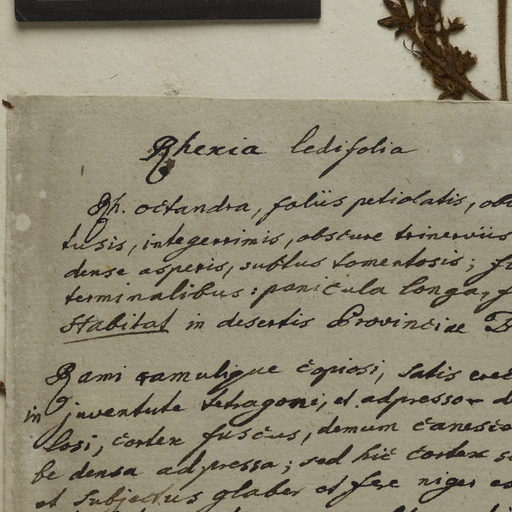 Rhexia ledifolia
Rh. octandra, foliis petiolatis, ob
tusis, integerrimis, obscure trinerviis
dense asperis, subtus tomentosis; f
terminalibus: panicula longa, f
Habitat in desertis Provinciae B
Rami ramulique copiosi, satis erec
in juventute tetragoni, et adpresso d
losi, cortex fuscus, demum canesce
be densa adpressa; sed hic cortex s
et subjectus glaber et fere niger es